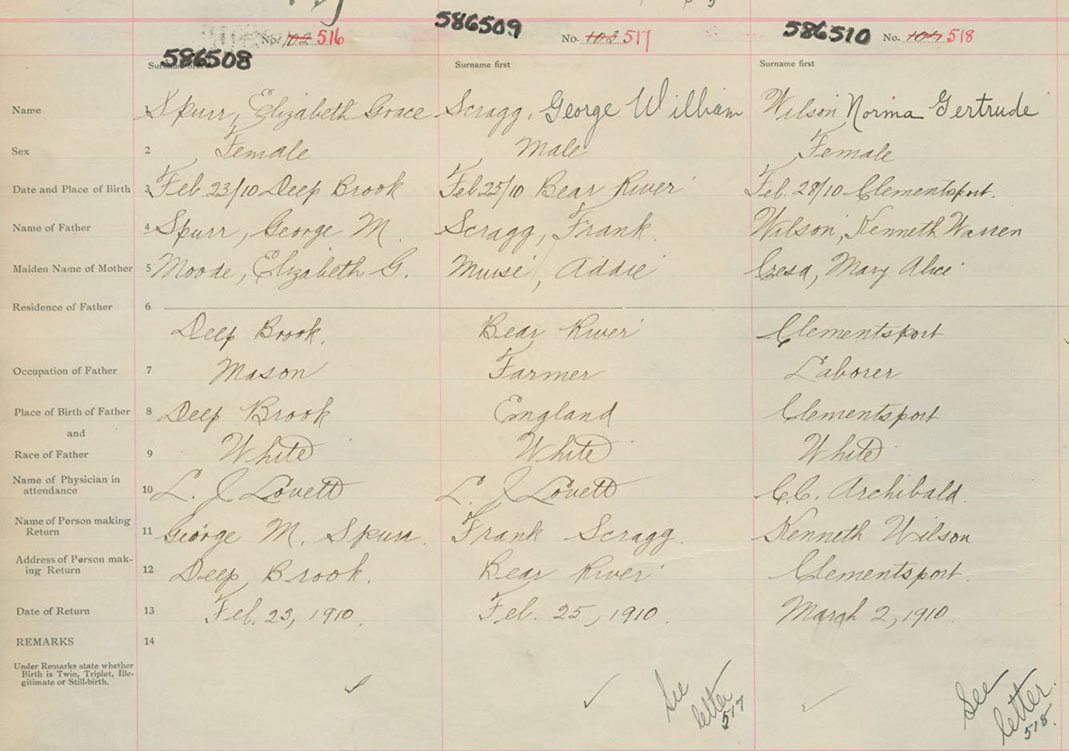 586508 No. 102 516 586509 No. 103 517 586510 No. 104 518
Surname first Surname first Surname first
Name Spurr, Elizabeth Grace Scragg, George William Wilson Norma Gertrude
Sex 2 Female Male Female
Date and Place of Birth 3 Feb 23/10 Deep Brook Feb 25/10 Bear River Feb. 28/10 Clementsport.
Name of Father 4 Spurr, George M. Scragg, Frank. Wilson, Kenneth Warren
Maiden Name of Mother 5 Elizabeth G. Muise, Addie Mary Alice
Residence of Father 6
Deep Brook. Bear River Clementsport
Occupation of Father 7 Mason Farmer Laborer
Place of Birth of Father 8 Deep Brook England Clementsport
and
Race of Father 9 White White White
Name of Physician in
attendance 10 L. J. Lovett L. J. Lovett C.C. Archibald.
Name of Person making
Return 11 George M. Spurr. Frank Scragg. Kenneth Wilson
Address of Person mak-
ing Return 12 Deep Brook. Bear River Clementsport.
Date of Return 13 Feb. 23, 1910. Feb. 25, 1910. March 2, 1910.
REMARKS 14
Under Remarks state whether
Birth is Twin, Triplet, Ille-
gitimate or Still-birth.
See
letter
517
See
letter
518.